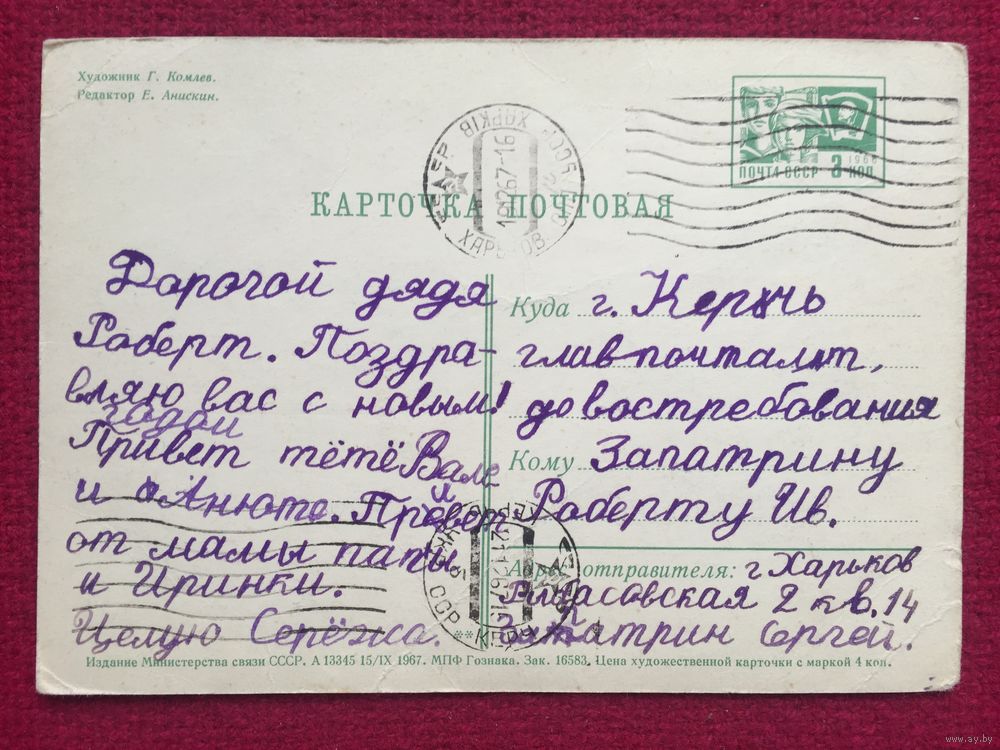 Художник Г. Комлев.
Редактор Е. Анискин.
ПОЧТА СССР 3 КОП.
1966
ХАРКІВ
18 12 67-16
КАРТОЧКА ПОЧТОВАЯ
Дорогой дядя
Роберт. Поздра-
вляю вас с новым!
годом
Привет тётё Вале
и Анюте. Привет
от мамы папы
и Иринки.
Целую Серёжа.
Куда г. Керчь
главпочтамт,
до востребования
Кому Запатрину
Роберту Ив.
Адрес отправителя: г Харьков
2 кв. 14
Запатрин Сергей.
Издание Министерства связи СССР. А 13345 15/IX 1967. МПФ Гознака. Зак. 16583. Цена художественной карточки с маркой 4 коп.
www.ay.by